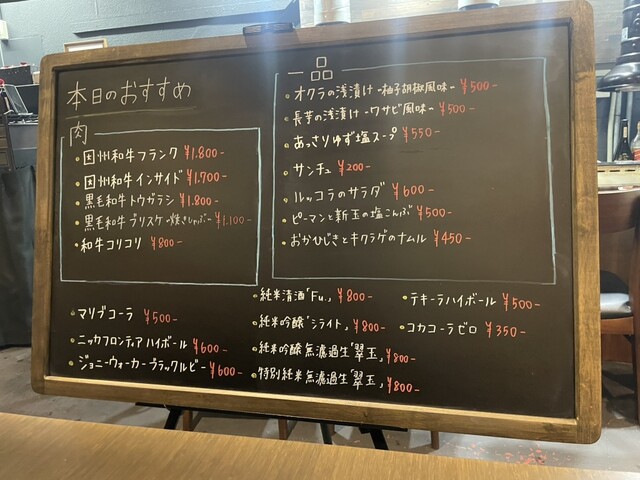 本日のおすすめ
肉
・因州和牛フランク ¥1.800-
・因州和牛インサイド ¥1.700-
・黒毛和牛トウガラシ ¥1.800-
・黒毛和牛ブリスケ-焼きしゃぶ- ¥1.100-
・和牛コリコリ ¥800-
一品
・オクラの浅漬け-柚子胡椒風味- ¥500-
・長芋の浅漬け-ワサビ風味- ¥500-
・あっさりゆず塩スープ ¥550-
・サンチュ ¥200-
・ルッコラのサラダ ¥600-
・ピーマンと新玉の塩こんぶ ¥500-
・おかひじきとキクラゲのナムル ¥450-
・マリブコーラ ¥500-
・ニッカフロンティアハイボール ¥600-
・ジョニーウォーカーブラックルビー ¥600-
・純米清酒「Fu.」 ¥800-
・純米吟醸「シライト」 ¥800-
・純米吟醸無濾過生「翠玉」 ¥800-
・特別純米無濾過生「翠玉」 ¥800-
・テキーラハイボール ¥500-
・コカコーラゼロ ¥350-